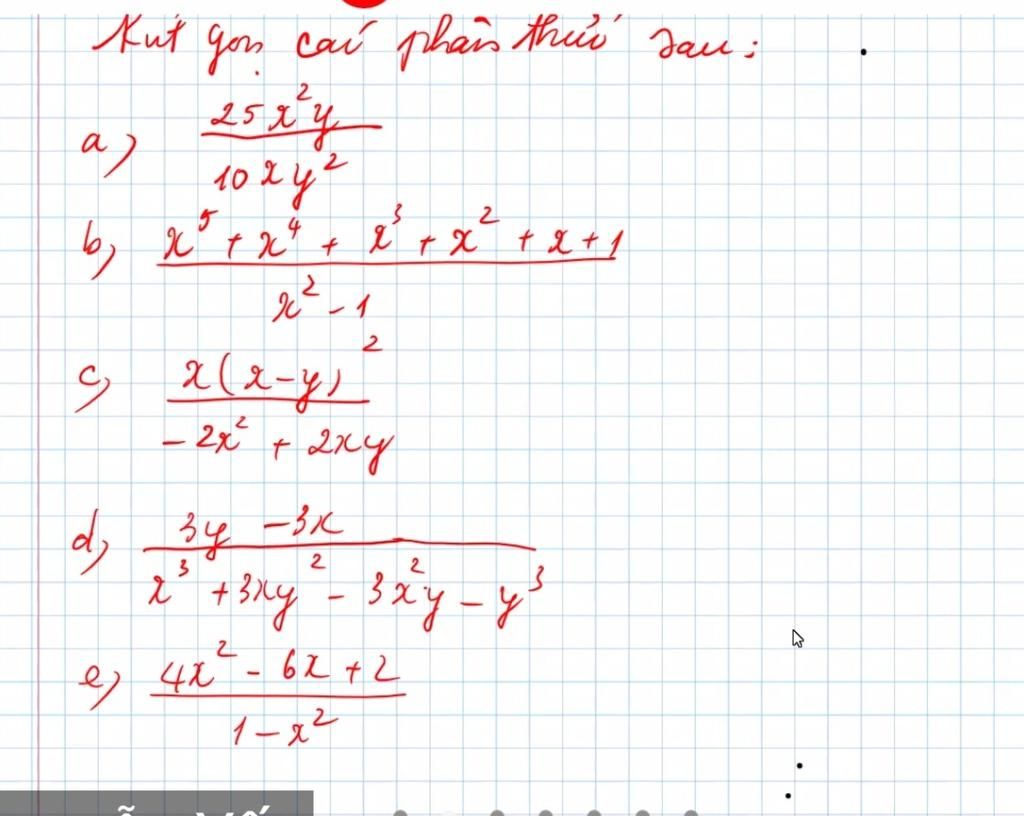 Rút gọn các phân thức sau:
a) \frac{25x^2y}{10xy^2}
b) \frac{x^5 + x^4 + x^3 + x^2 + x + 1}{x^2 - 1}
c) \frac{x(x-y)^2}{-2x^2 + 2xy}
d) \frac{3y - 3x}{x^3 + 3xy^2 - 3x^2y - y^3}
e) \frac{4x^2 - 6x + 2}{1 - x^2}